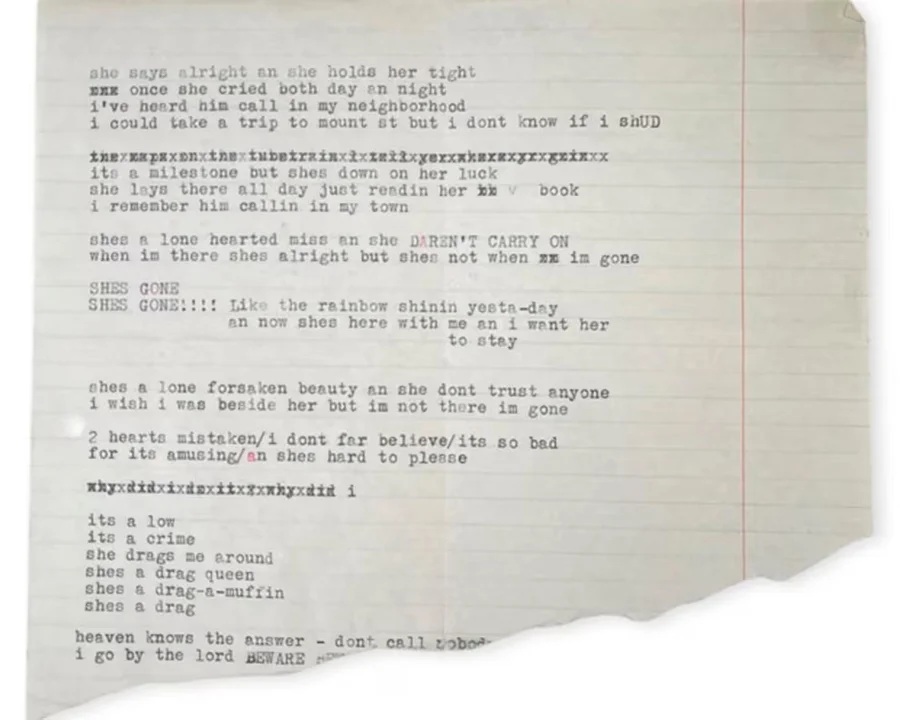 she says alright an she holds her tight
xxx once she cried both day an night
i've heard him call in my neighborhood
i could take a trip to mount st but i dont know if i shUD
its a milestone but shes down on her luck
she lays there all day just readin her xx v book
i remember him callin in my town
shes a lone hearted miss an she DAREN'T CARRY ON
when im there shes alright but shes not when xx im gone
SHES GONE
SHES GONE!!!! Like the rainbow shinin yesta-day
an now shes here with me an i want her
to stay
shes a lone forsaken beauty an she dont trust anyone
i wish i was beside her but im not there im gone
2 hearts mistaken/i dont far believe/its so bad
for its amusing/an shes hard to please
i
its a low
its a crime
she drags me around
shes a drag queen
shes a drag-a-muffin
shes a drag
heaven knows the answer - dont call
i go by the lord BEWARE